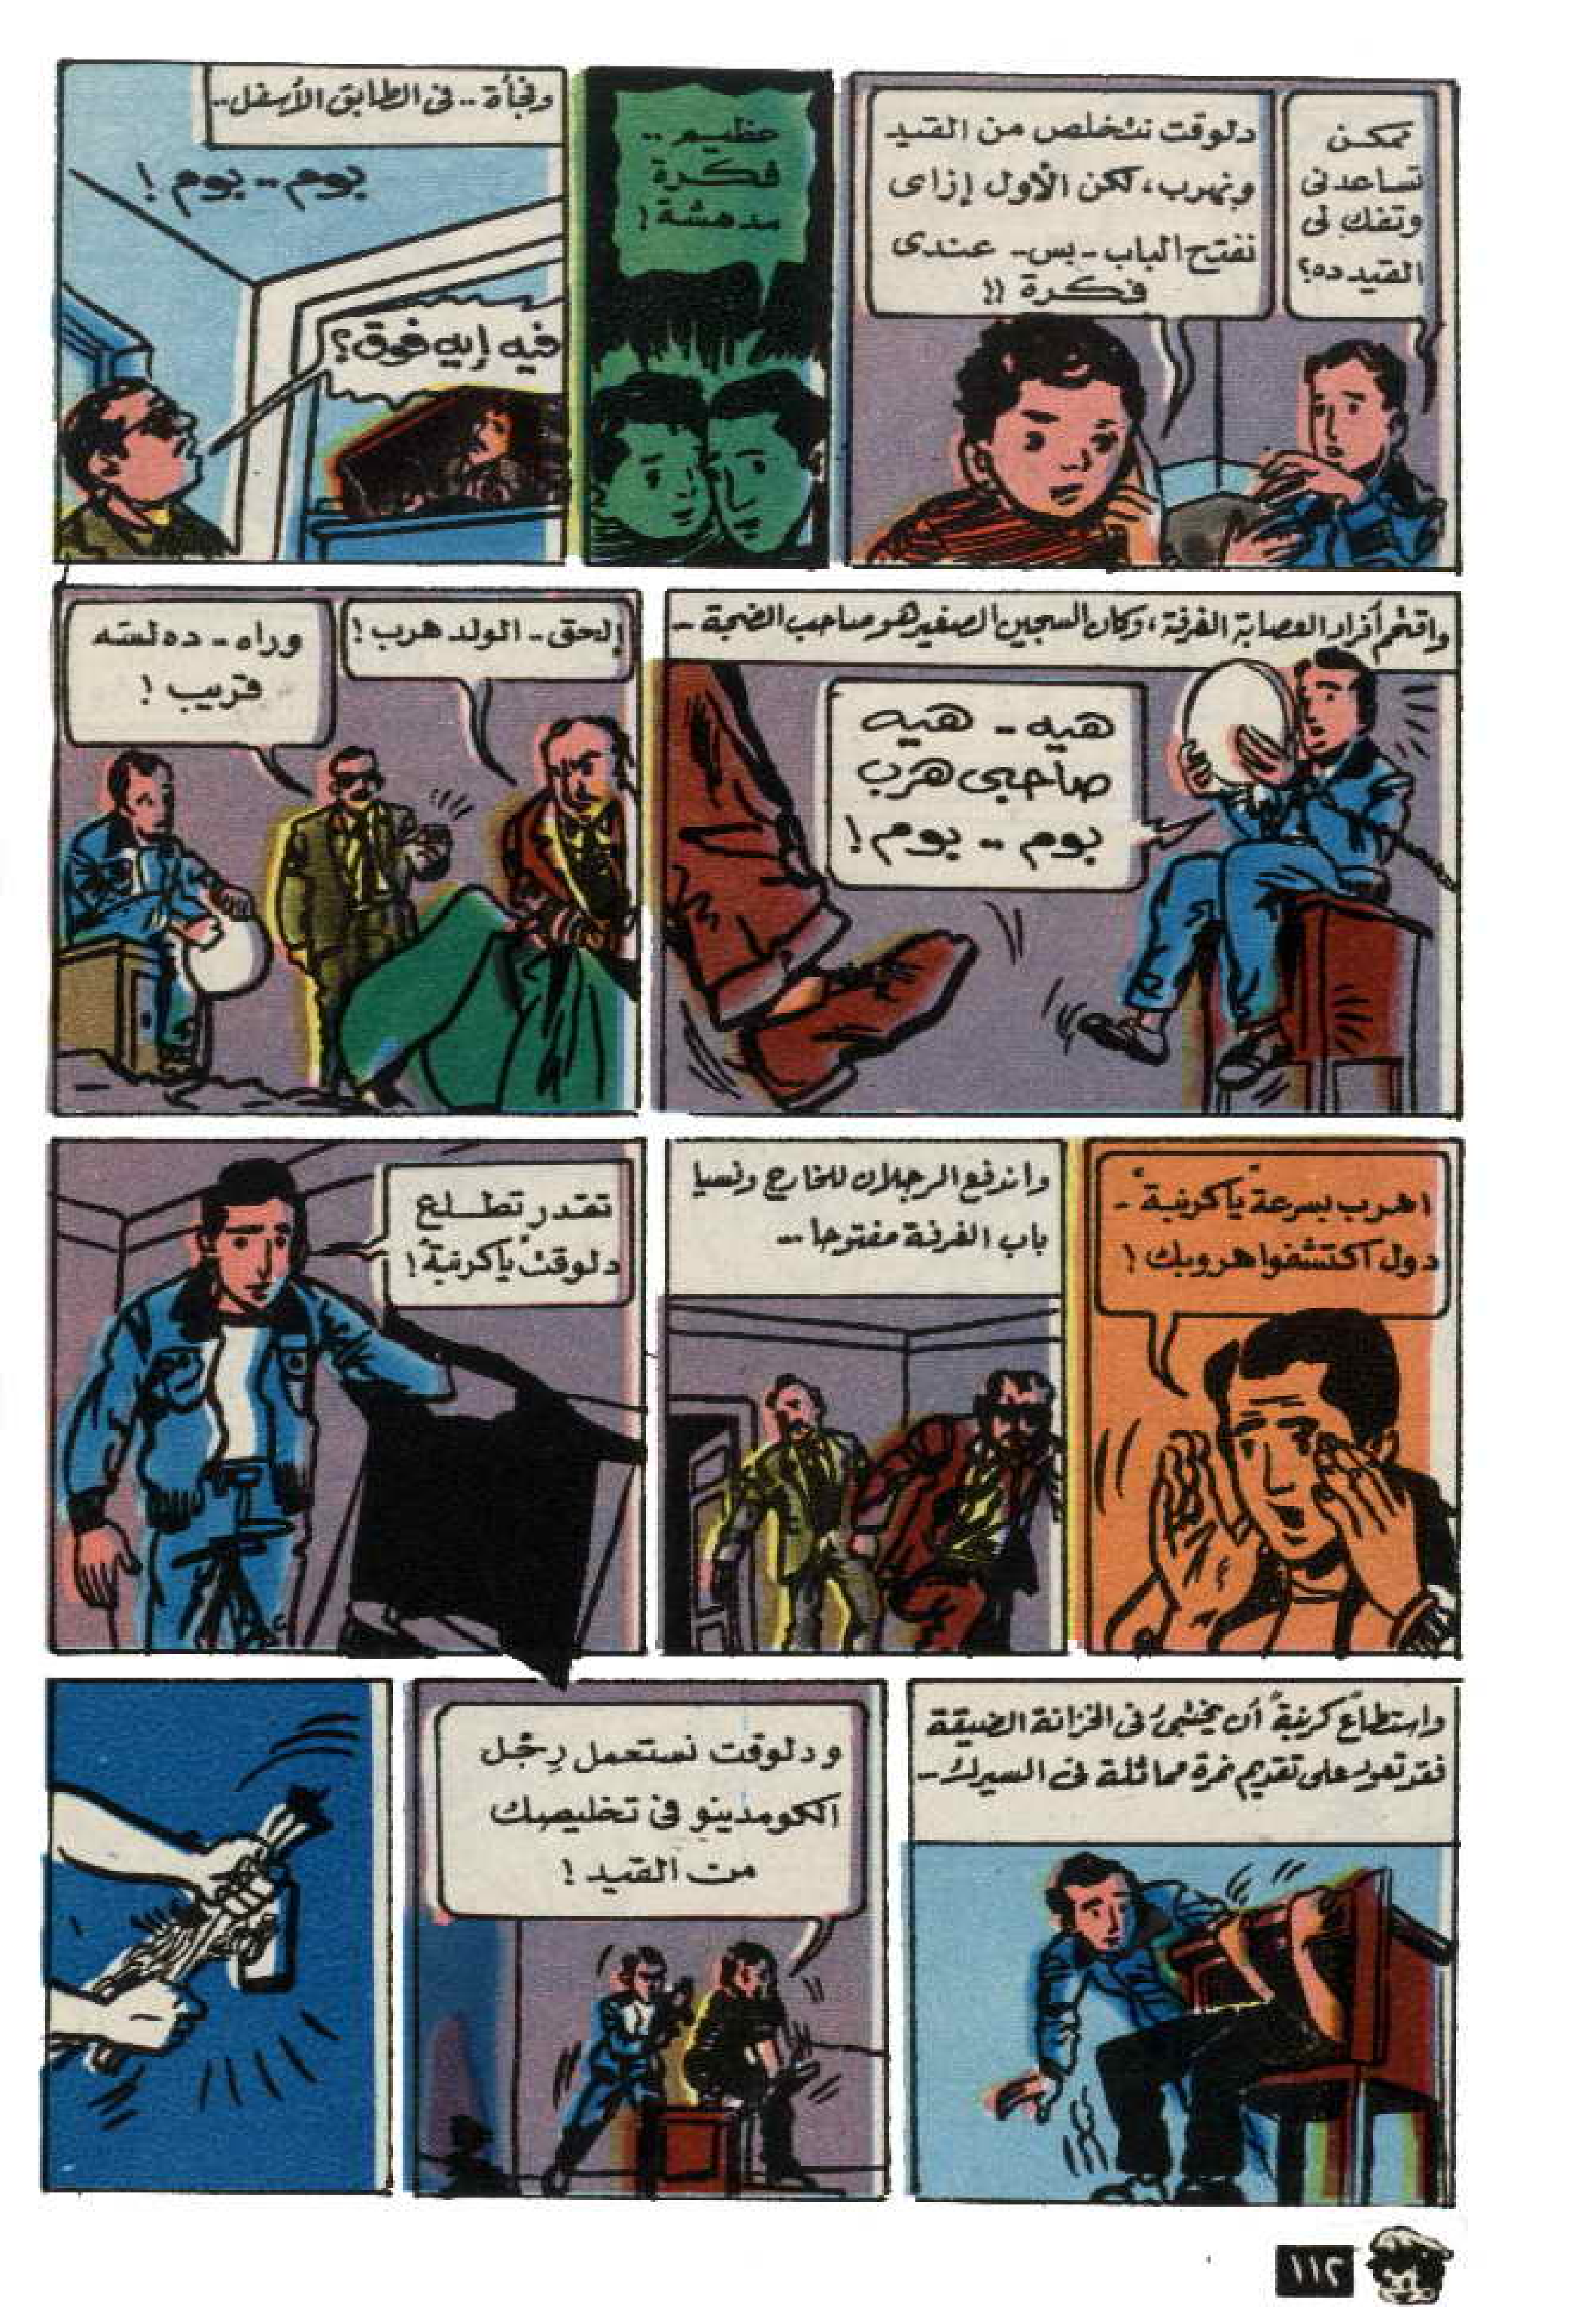 ممكن
تساعدنى
وتفك لى
القيد ده؟
دلوقت نتخلص من القيد
ونهرب، لكن الأول إزاى
نفتح الباب - بس - عندى
فكرة !!
عظيم ..
فكرة
مدهشة !
وفجأة .. فى الطابق الأسفل ..
بوم - بوم !
فيه إيه فوق؟
واقتحم أفراد العصابة الغرفة، وكان السجين الصغير هو صاحب الضجة -
هيه - هيه
صاحبى هرب
بوم .. بوم !
إلحق - الولد هرب !
وراه - ده لسته
قريب !
اهرب بسرعة "ياكرنبة" -
دول اكتشفوا هروبك !
واندفع الرجلان للخارج ونسيا
باب الغرفة مفتوحا --
تقدر تطلع
دلوقت "ياكرنبة" !
واستطاع "كرنبة" أن يختبئ فى الخزانة الضيقة
فقد تعود على تقديم نمرة مماثلة فى السيرك -
ودلوقت نستعمل رِجْل
الكومدينو فى تخليصك
من القيد !
١١٢